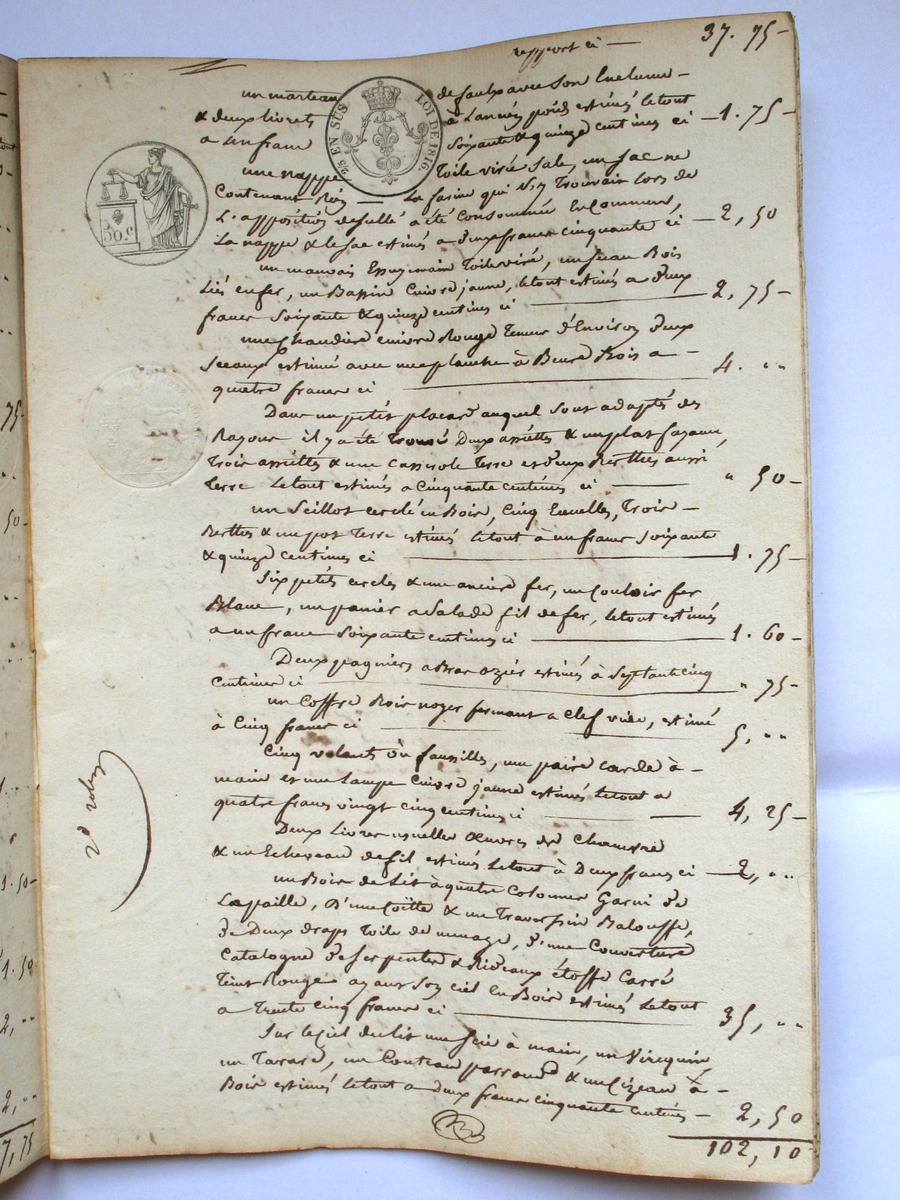 rapport ci — 37. 75 -
un marteau de faulx avec son Enclume -
& deux livrets à Lannés poids estimés le tout
a un franc soixante & quinze centimes ci - 1. 75 -
25 EN SUS LOI DE 1816.
une nappe Toile virée Sale, un sac ne
50.c
Contenant Rien — La farine qui s'y trouvait lors de
L'apposition de scellé a été Consommée En Commun,
La nappe & le sac estimés a deux francs cinquante ci - 2, 50
un mauvais Essuyemain Toile virée, un seau Bois
Liés en fer, un Bassin Cuivre jaune, le tout estimés a deux
francs soixante & quinze centimes ci — 2, 75 -
une Chaudière cuivre Rouge Teneur d'Environ deux
Seeaux estimé avec une planche à Beure Bois a -
quatre francs ci — 4. ..
Dans un petit placard auquel sont adaptés des
Rayons il y a été Trouvé Deux assiettes & un plat fayance,
Trois assiettes & une Casserole Terre et deux Berthes aussi
Terre Le tout estimés a Cinquante Centimes ci — " 50 -
un Seillot cerclé en Bois, Cinq Ecuelles, Trois -
Berthes & un pot Terre estimés le tout à un franc soixante
& quinze centimes ci — 1. 75 -
Six petits cercles & une ancière fer, un Couloir fer
Blanc, un panier a Salade fil de fer, le tout estimés
a un franc soixante centimes ci — 1. 60 -
Deux pagniers a Bras ozier estimés à Septante cinq
centimes ci — " 75 -
un Coffre Bois noyer fermant a clef vuide, estimé
à Cinq francs ci — 5, ..
Cinq volants ou faussilles, une paire carde à -
main et une Lampe Cuivre jaune estimés le tout a
quatre francs vingt cinq centimes ci — 4, 25 -
Deux Livres usuelles Œuvres de Chanvre
& un Echeveau de fil estimés Le tout à Deux francs ci - 2, ..
un Bois de Lit à quatre Colonnes Garni de
La paille, D'une Coitte & un Traversin Balouffe,
de Deux draps Toile de menage, d'une Couverture
Catalogne de serpentes & Rideaux étoffe Carré
Teint Rouge ayant son ciel En Bois estimés le tout
a Trente Cinq francs ci — 35, ..
Sur le ciel du lit une Scie à main, un Virequin,
un Tarare, un Couteau parroud & un Cizeau à -
Bois estimés le tout a deux francs cinquante Centimes - 2, 50
102, 10
75 -
50 -
1. 50 -
1. 50
2, ..
2, ..
7, 75